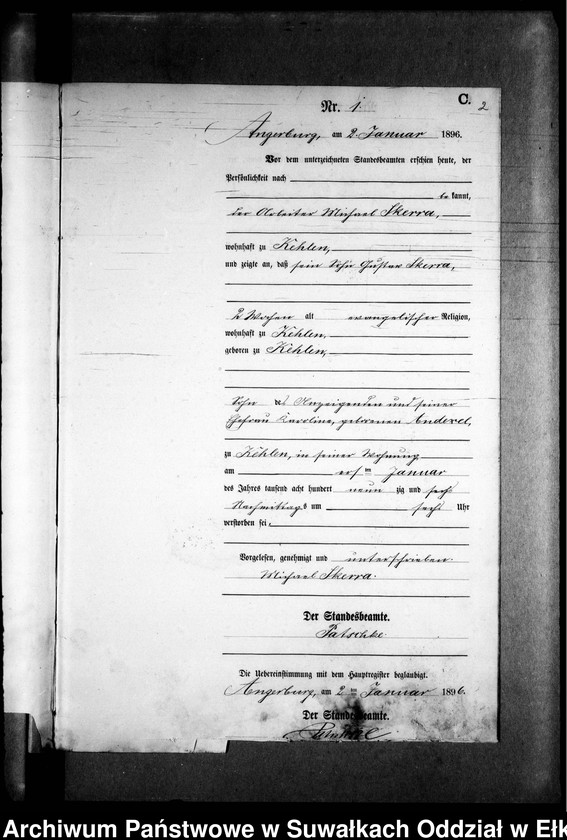 C.
2
Nr. 1.
Angerburg, am 2. Januar 1896.
Vor dem unterzeichneten Standesbeamten erschien heute, der
Persönlichkeit nach
be kannt,
der Arbeiter Michael Skerra,
wohnhaft zu Kehlen,
und zeigte an, daß sein Sohn Gustav Skerra,
2 Wochen alt evangelischer Religion,
wohnhaft zu Kehlen,
geboren zu Kehlen,
Sohn des Anzeigenden und seiner
Ehefrau Karoline, geborenen
zu Kehlen, in seiner Wohnung
am ersten Januar
des Jahres tausend acht hundert neun zig und sechs
Nachmittags um sechs Uhr
verstorben sei.
Vorgelesen, genehmigt und unterschrieben.
Michael Skerra.
Der Standesbeamte.
Die Uebereinstimmung mit dem Hauptregister beglaubigt.
Angerburg, am 2ten Januar 1896.
Der Standesbeamte.
Archiwum Państwowe w Suwałkach Oddział w Ełk